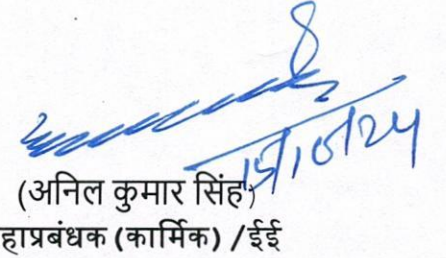 (अनिल कुमार सिंह)
हाप्रबंधक (कार्मिक) /ईई